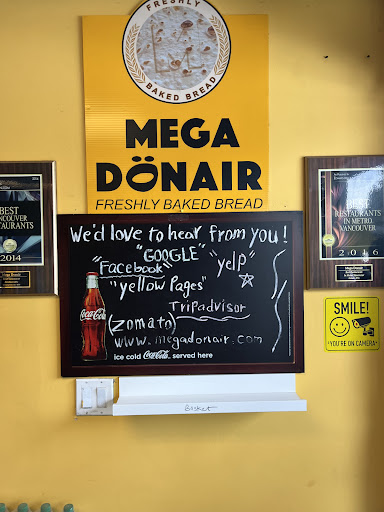 FRESHLY
BAKED BREAD
MEGA
DÖNAIR
FRESHLY BAKED BREAD
We'd love to hear from you!
"GOOGLE"
"Facebook" "yelp"
"yellow pages"
TripAdvisor
(zomato)
www.megadonair.com
Coca-Cola
ice cold Coca-Cola served here
BEST
VANCOUVER
RESTAURANTS
2014
BEST
RESTAURANTS
IN METRO
VANCOUVER
2016
SMILE!
YOU'RE ON CAMERA!
Basket